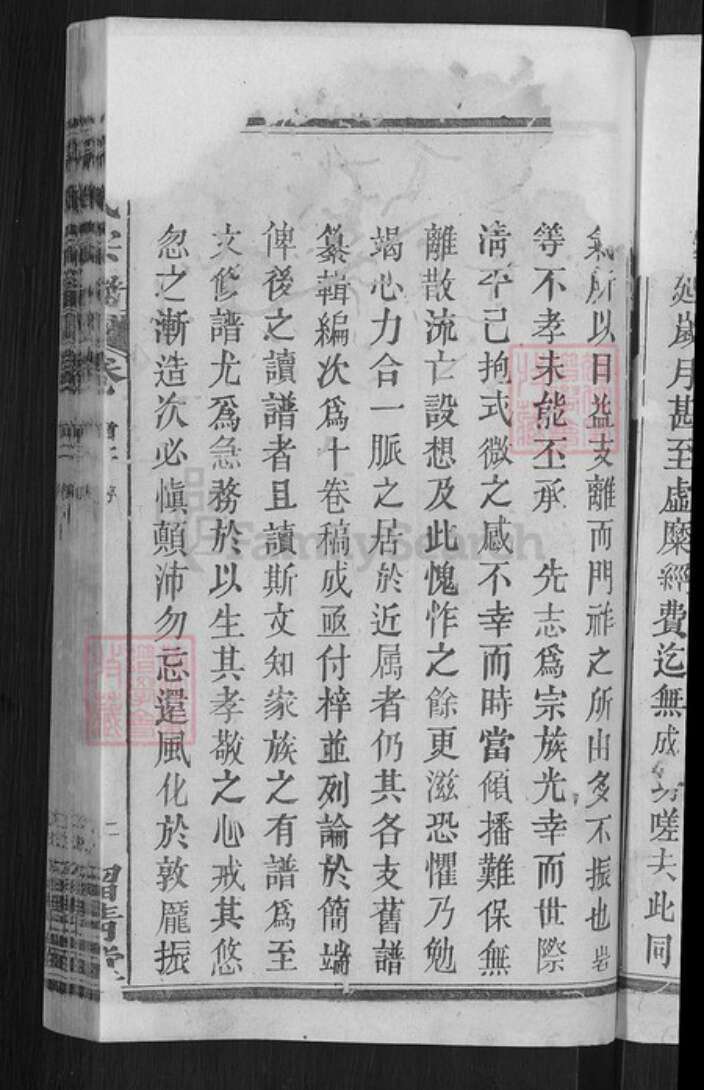 延歲月甚至虛糜經費迄無成 嗟夫此同
氣所以日益支離而門祚之所由多不振也岩
等不孝未能丕承 先志爲宗族光幸而世際
清平己抱式微之感不幸而時當傾播難保無
離散流亡設想及此愧怍之餘更滋恐懼乃勉
竭心力合一脈之居於近属者仍其各支舊譜
纂輯編次爲十卷稿成亟付梓並列論於簡端
俾後之讀譜者且讀斯文知家族之有譜爲至
文修譜尤爲急務於以生其孝敬之心戒其悠
忽之漸造次必愼顛沛勿忘還風化於敦龎振
FamilySearch